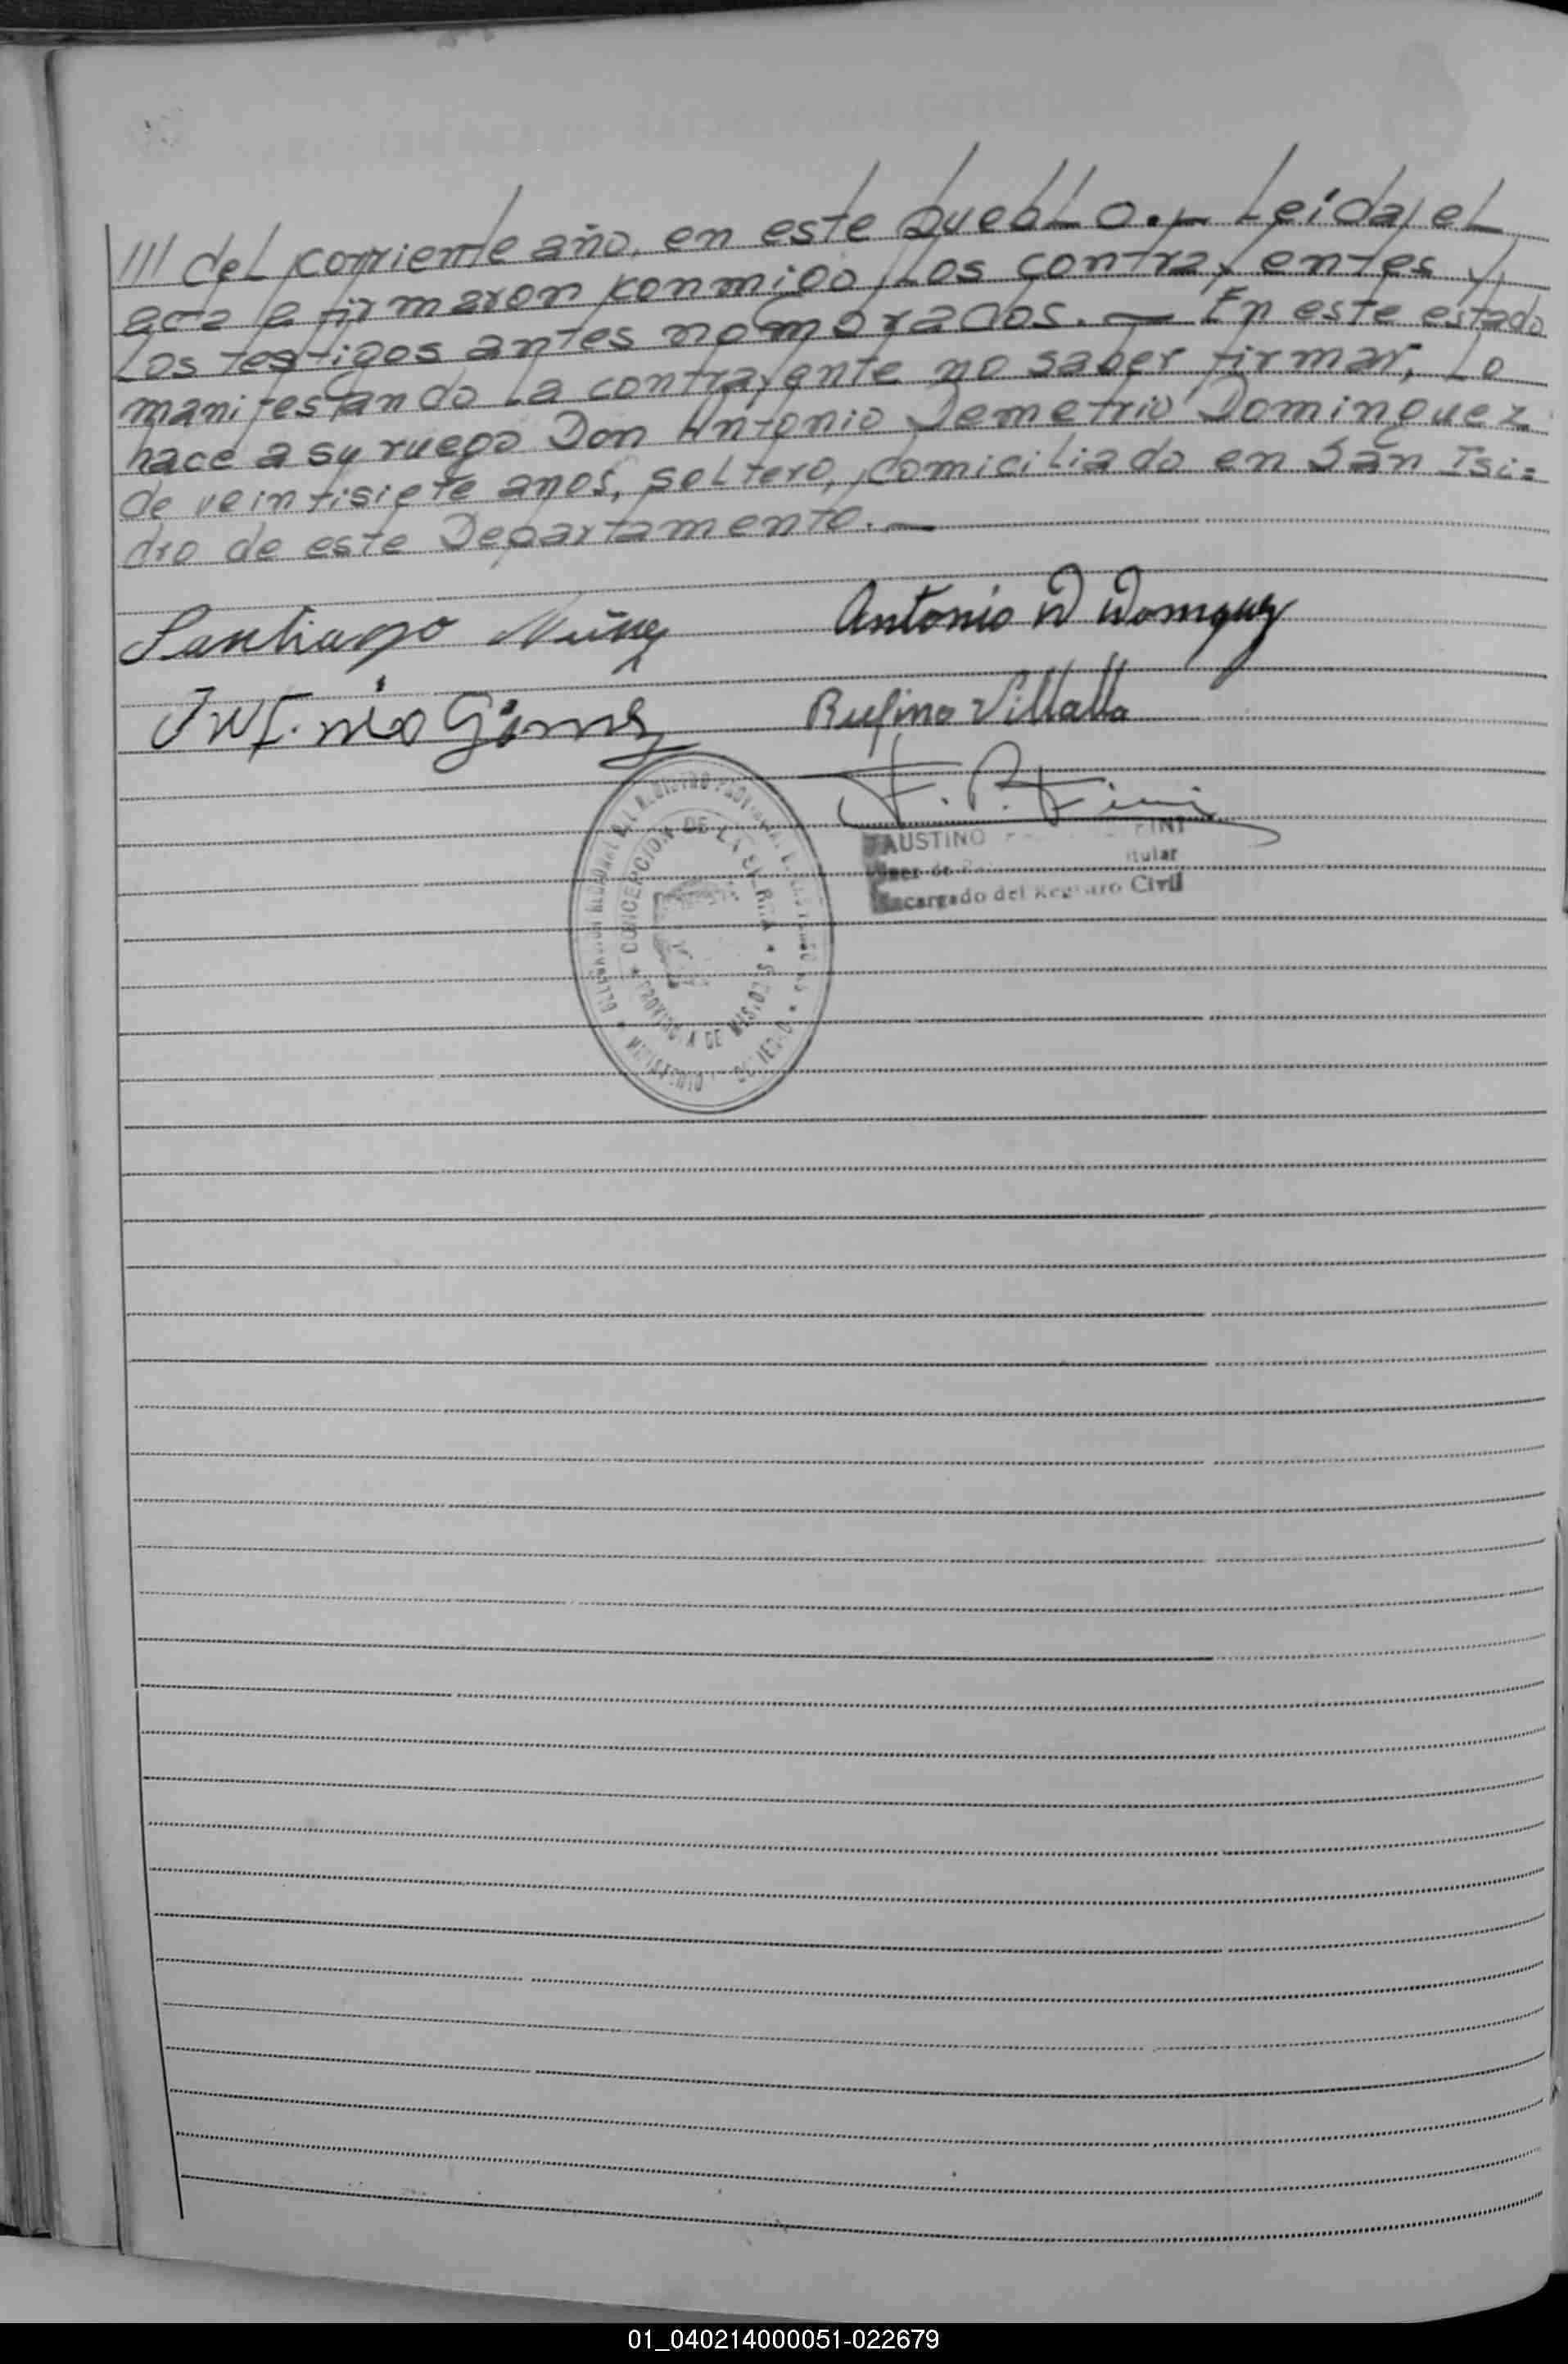 /// del corriente año, en este pueblo.- Leida el
acta la firmaron conmigo los contrayentes y
los testigos antes nombrados. — En este estado
manifestando la contrayente no saber firmar, lo
hace a su ruego Don Antonio Demetrio Dominguez
de veintisiete anos, soltero, domiciliado en San Isi=
dro de este Departamento. —
Santiago Núñez Antonio D Domguez
Gómez Rufino Villalba
F. P. Fini
CONCEPCION DE LA SIERRA
PROVINCIA DE MISIONES
FAUSTINO FINI
Juez de titular
Encargado del Registro Civil
01_040214000051-022679